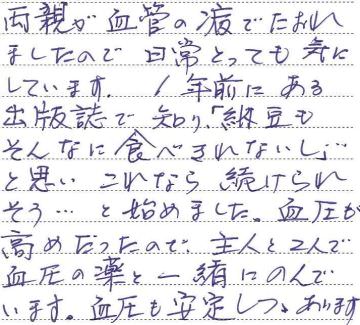 両親が血管の液でたおれ
ましたので 日常とっても気に
しています。 1年前にある
出版誌で知り、「納豆も
そんなに食べきれないし…
と思い これなら続けられ
そう…と始めました。血圧が
高めだったので、主人と2人で
血圧の薬と一緒にのんで
います。血圧も安定しつゝあります